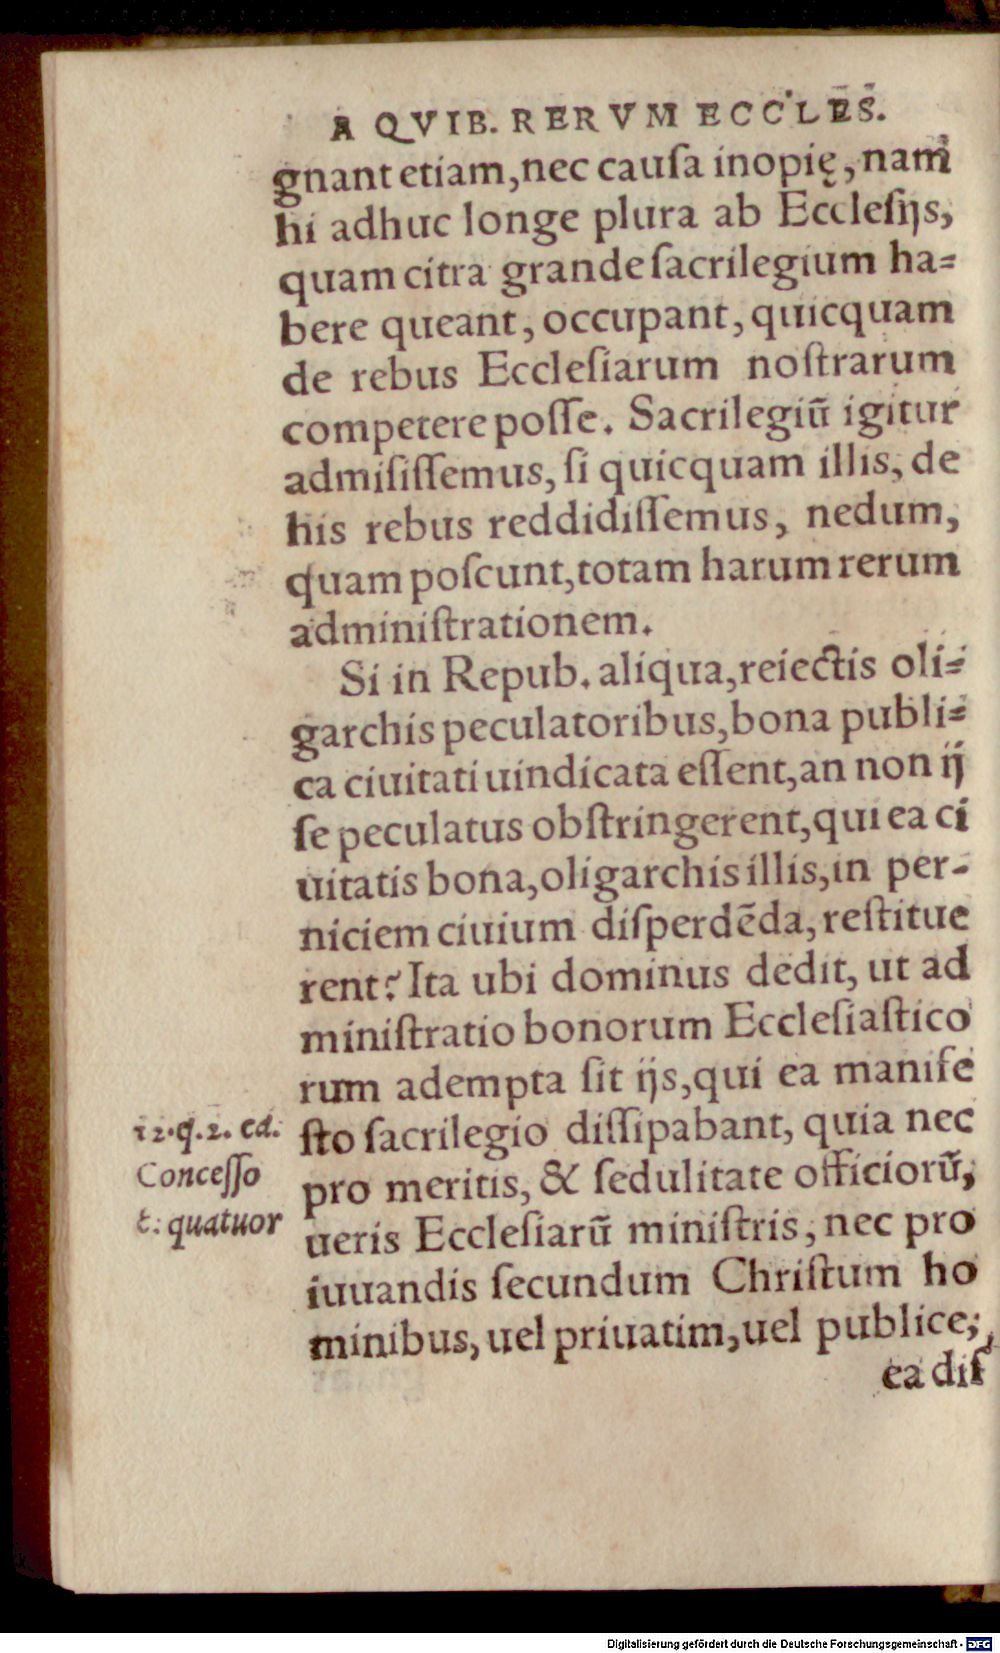 A QVIB. RERVM ECCLES.
gnant etiam, nec cauſa inopię, nam
hi adhuc longe plura ab Eccleſijs,
quam citra grande ſacrilegium ha=
bere queant, occupant, quicquam
de rebus Eccleſiarum noſtrarum
competere poſſe. Sacrilegiū igitur
admiſiſſemus, ſi quicquam illis, de
his rebus reddidiſſemus, nedum,
quam poſcunt, totam harum rerum
adminiſtrationem.
Si in Repub. aliqua, reiectis oli=
garchis peculatoribus, bona publi=
ca ciuitati uindicata eſſent, an non ij
ſe peculatus obſtringerent, qui ea ci
uitatis bona, oligarchis illis, in per-
niciem ciuium diſperdēda, reſtitue
rent? Ita ubi dominus dedit, ut ad
miniſtratio bonorum Eccleſiaſtico
rum adempta ſit ijs, qui ea manife
ſto ſacrilegio diſſipabant, quia nec
pro meritis, & ſedulitate officiorū,
ueris Eccleſiarū miniſtris, nec pro
iuuandis ſecundum Chriſtum ho
minibus, uel priuatim, uel publice,
ea diſ
12.q.2. ca.
Conceſſo
t: quatuor
Digitalisierung gefördert durch die Deutsche Forschungsgemeinschaft - DFG